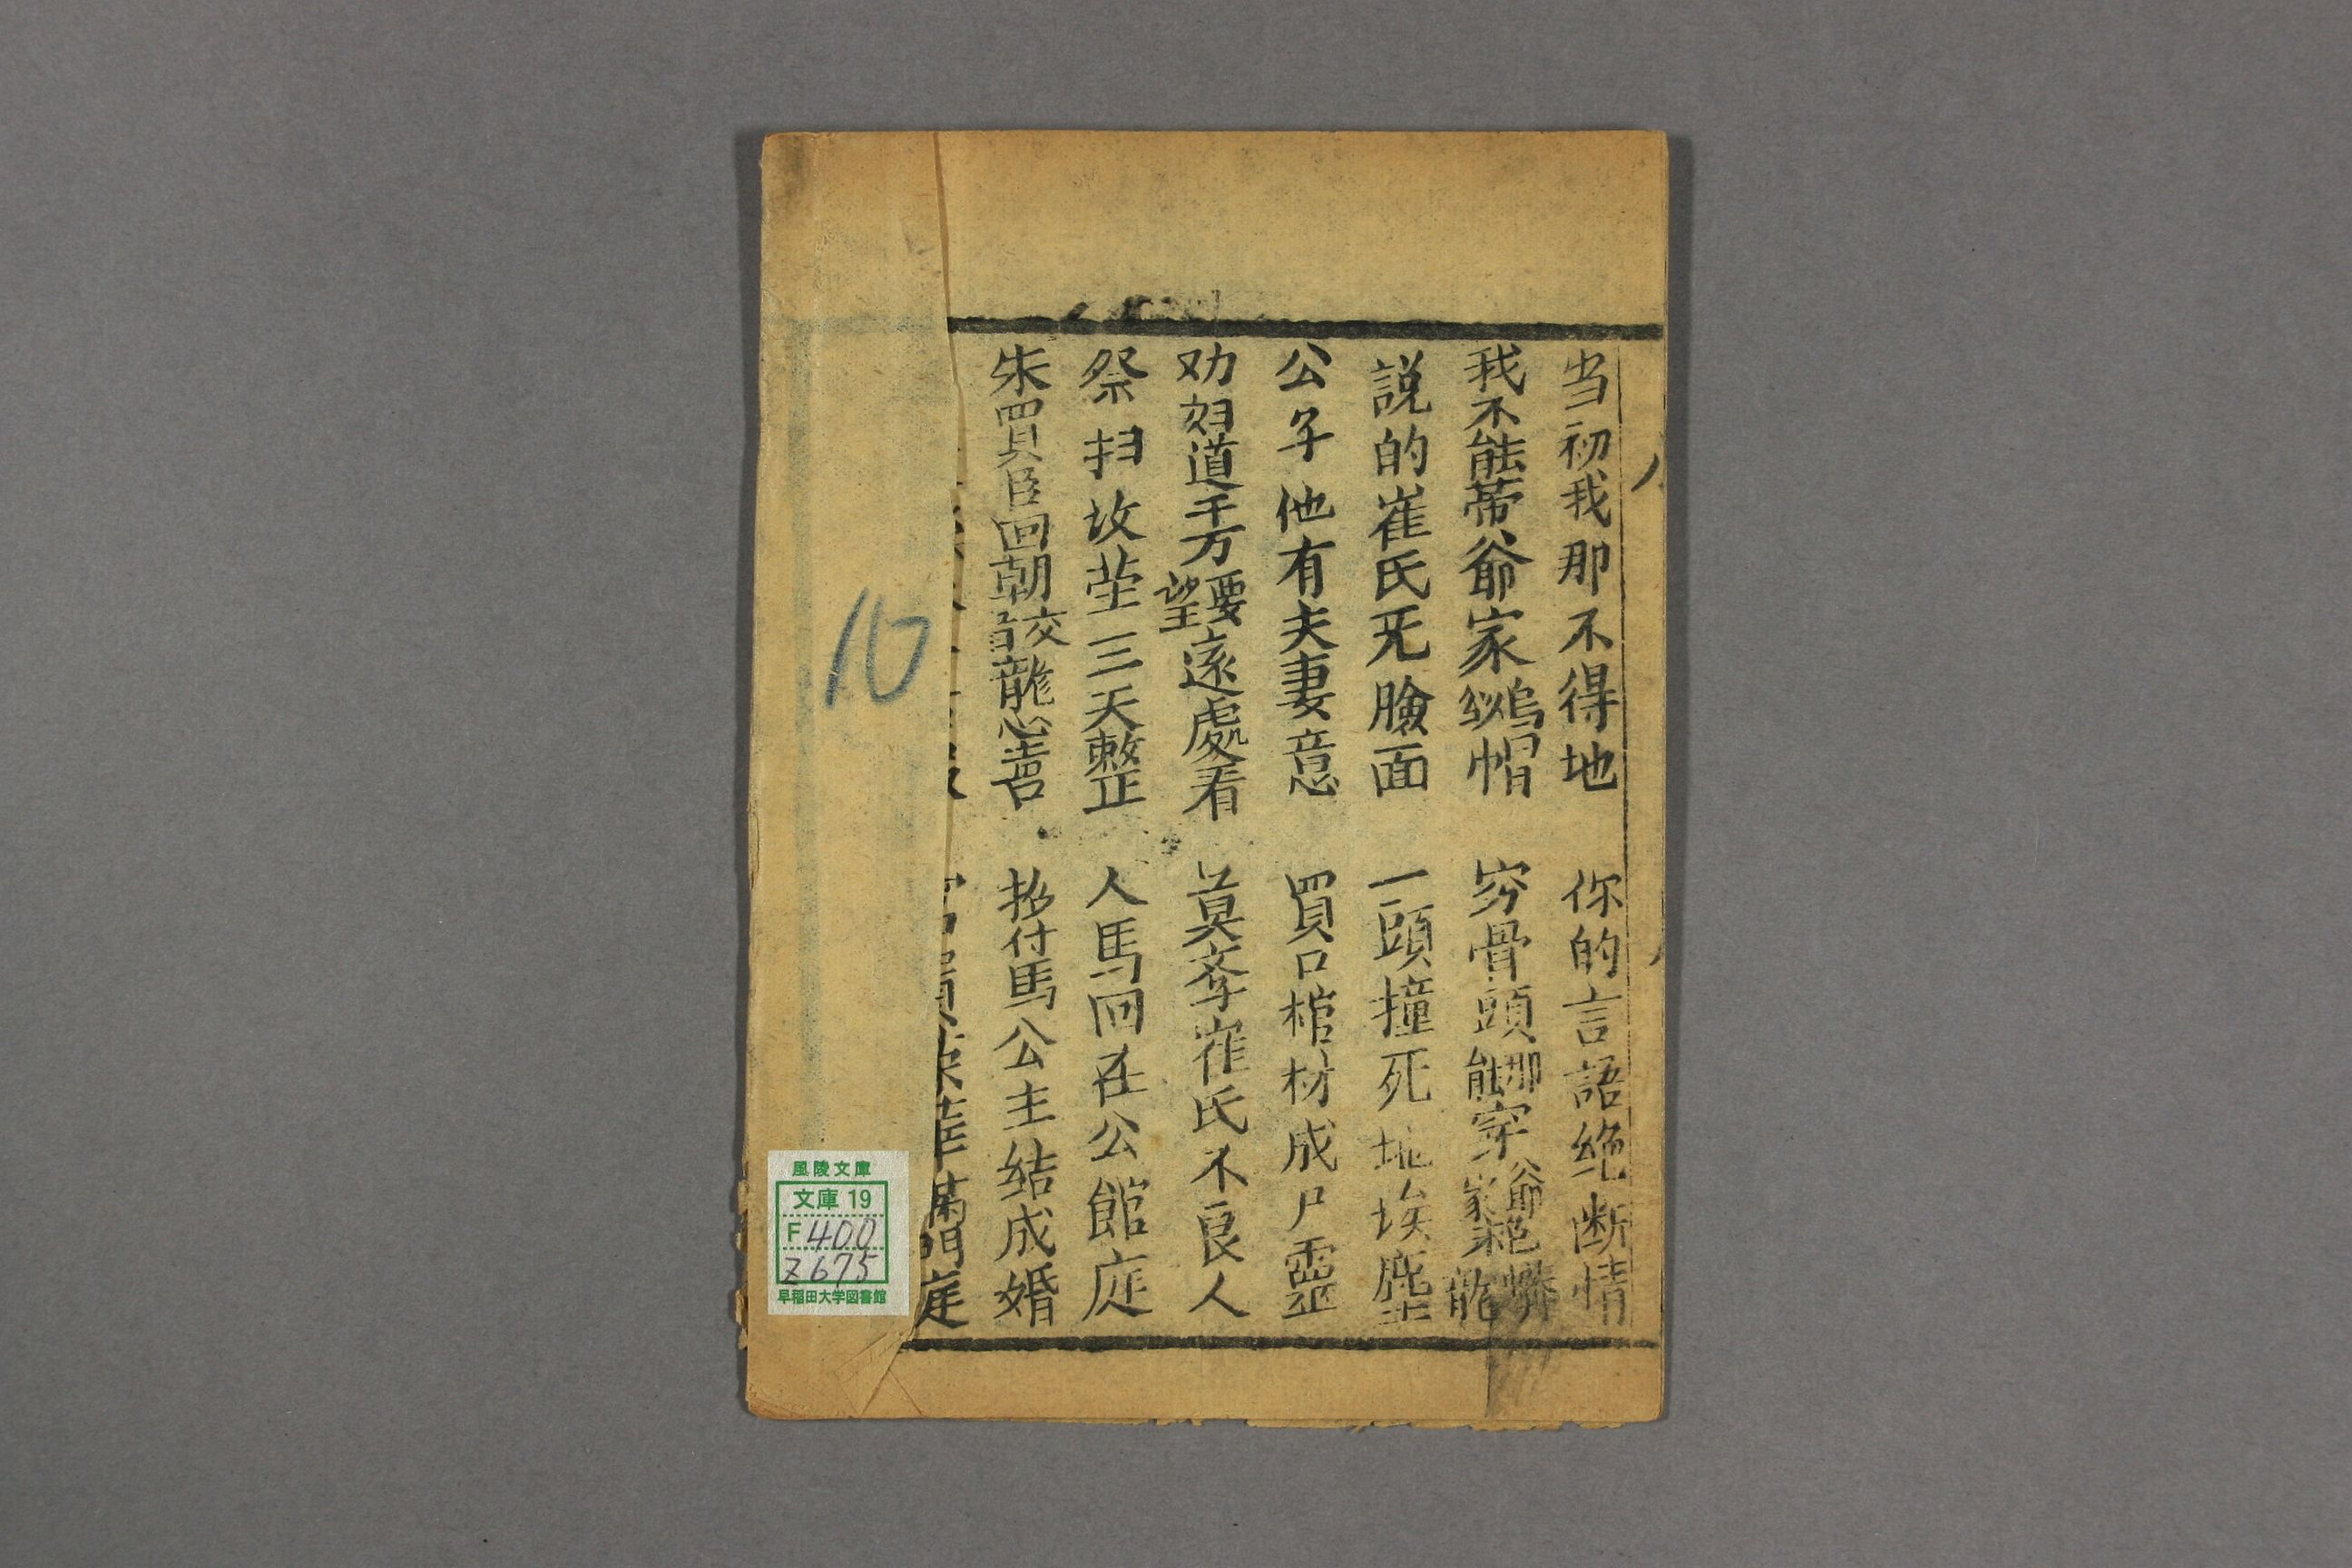 当初我那不得地 你的言語絶断情
我不能帶爺家紗烏帽 穷骨頭能那穿爺家
説的崔氏无臉面 一頭撞死地埃塵
公子他有夫妻意 買口棺材成尸靈
劝妇道千万要望遠處看 莫李崔氏不良人
祭扫坟茔三天整 人馬回在公館庭
朱買臣回朝交旨龍心喜 招付馬公主结成婚
門庭
10
風陵文庫
文庫 19
F 400
Z 675
早稲田大学図書館